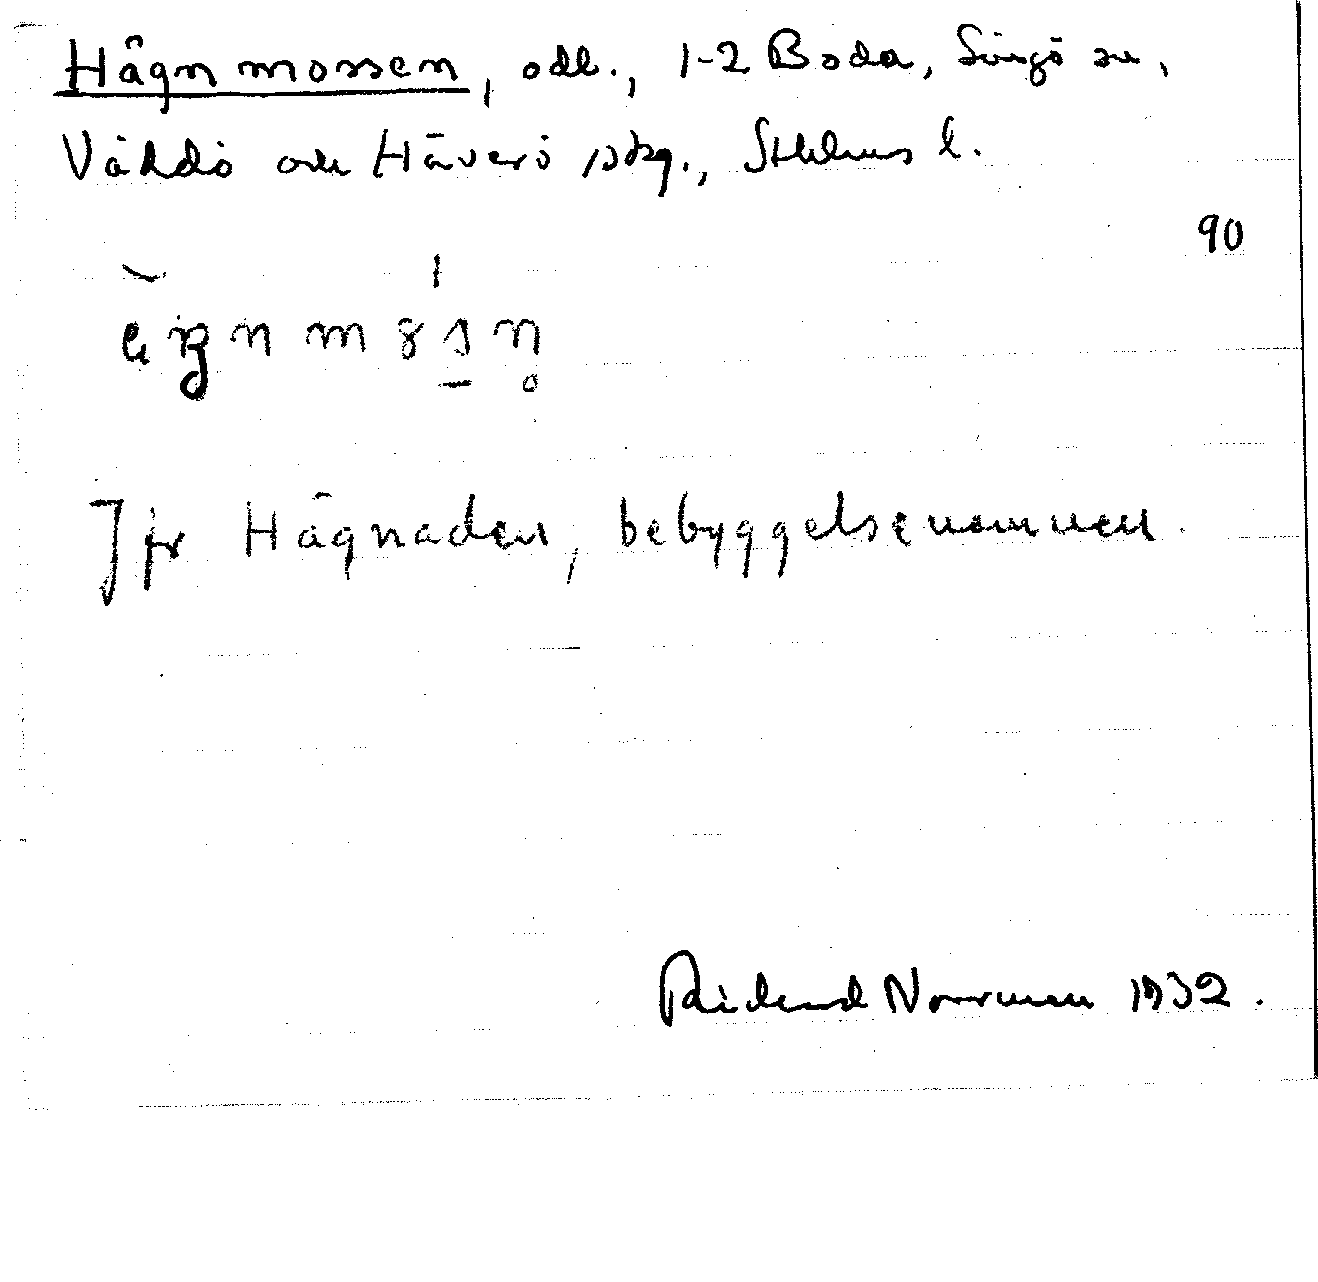 Hägnmossen, odl., 1-2 Boda, Singö sn,
Väddö och Häverö skg., Sthlms l.
90
Jfr Hägnaden, bebyggelsenamnen.
Rickard Norrman 1932.